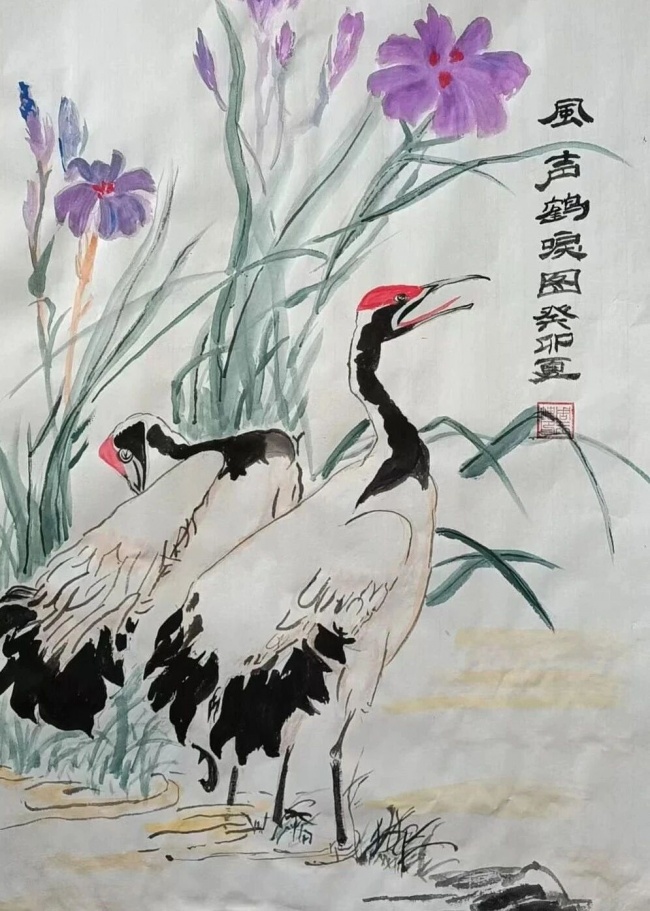 風声鶴唳图癸卯夏